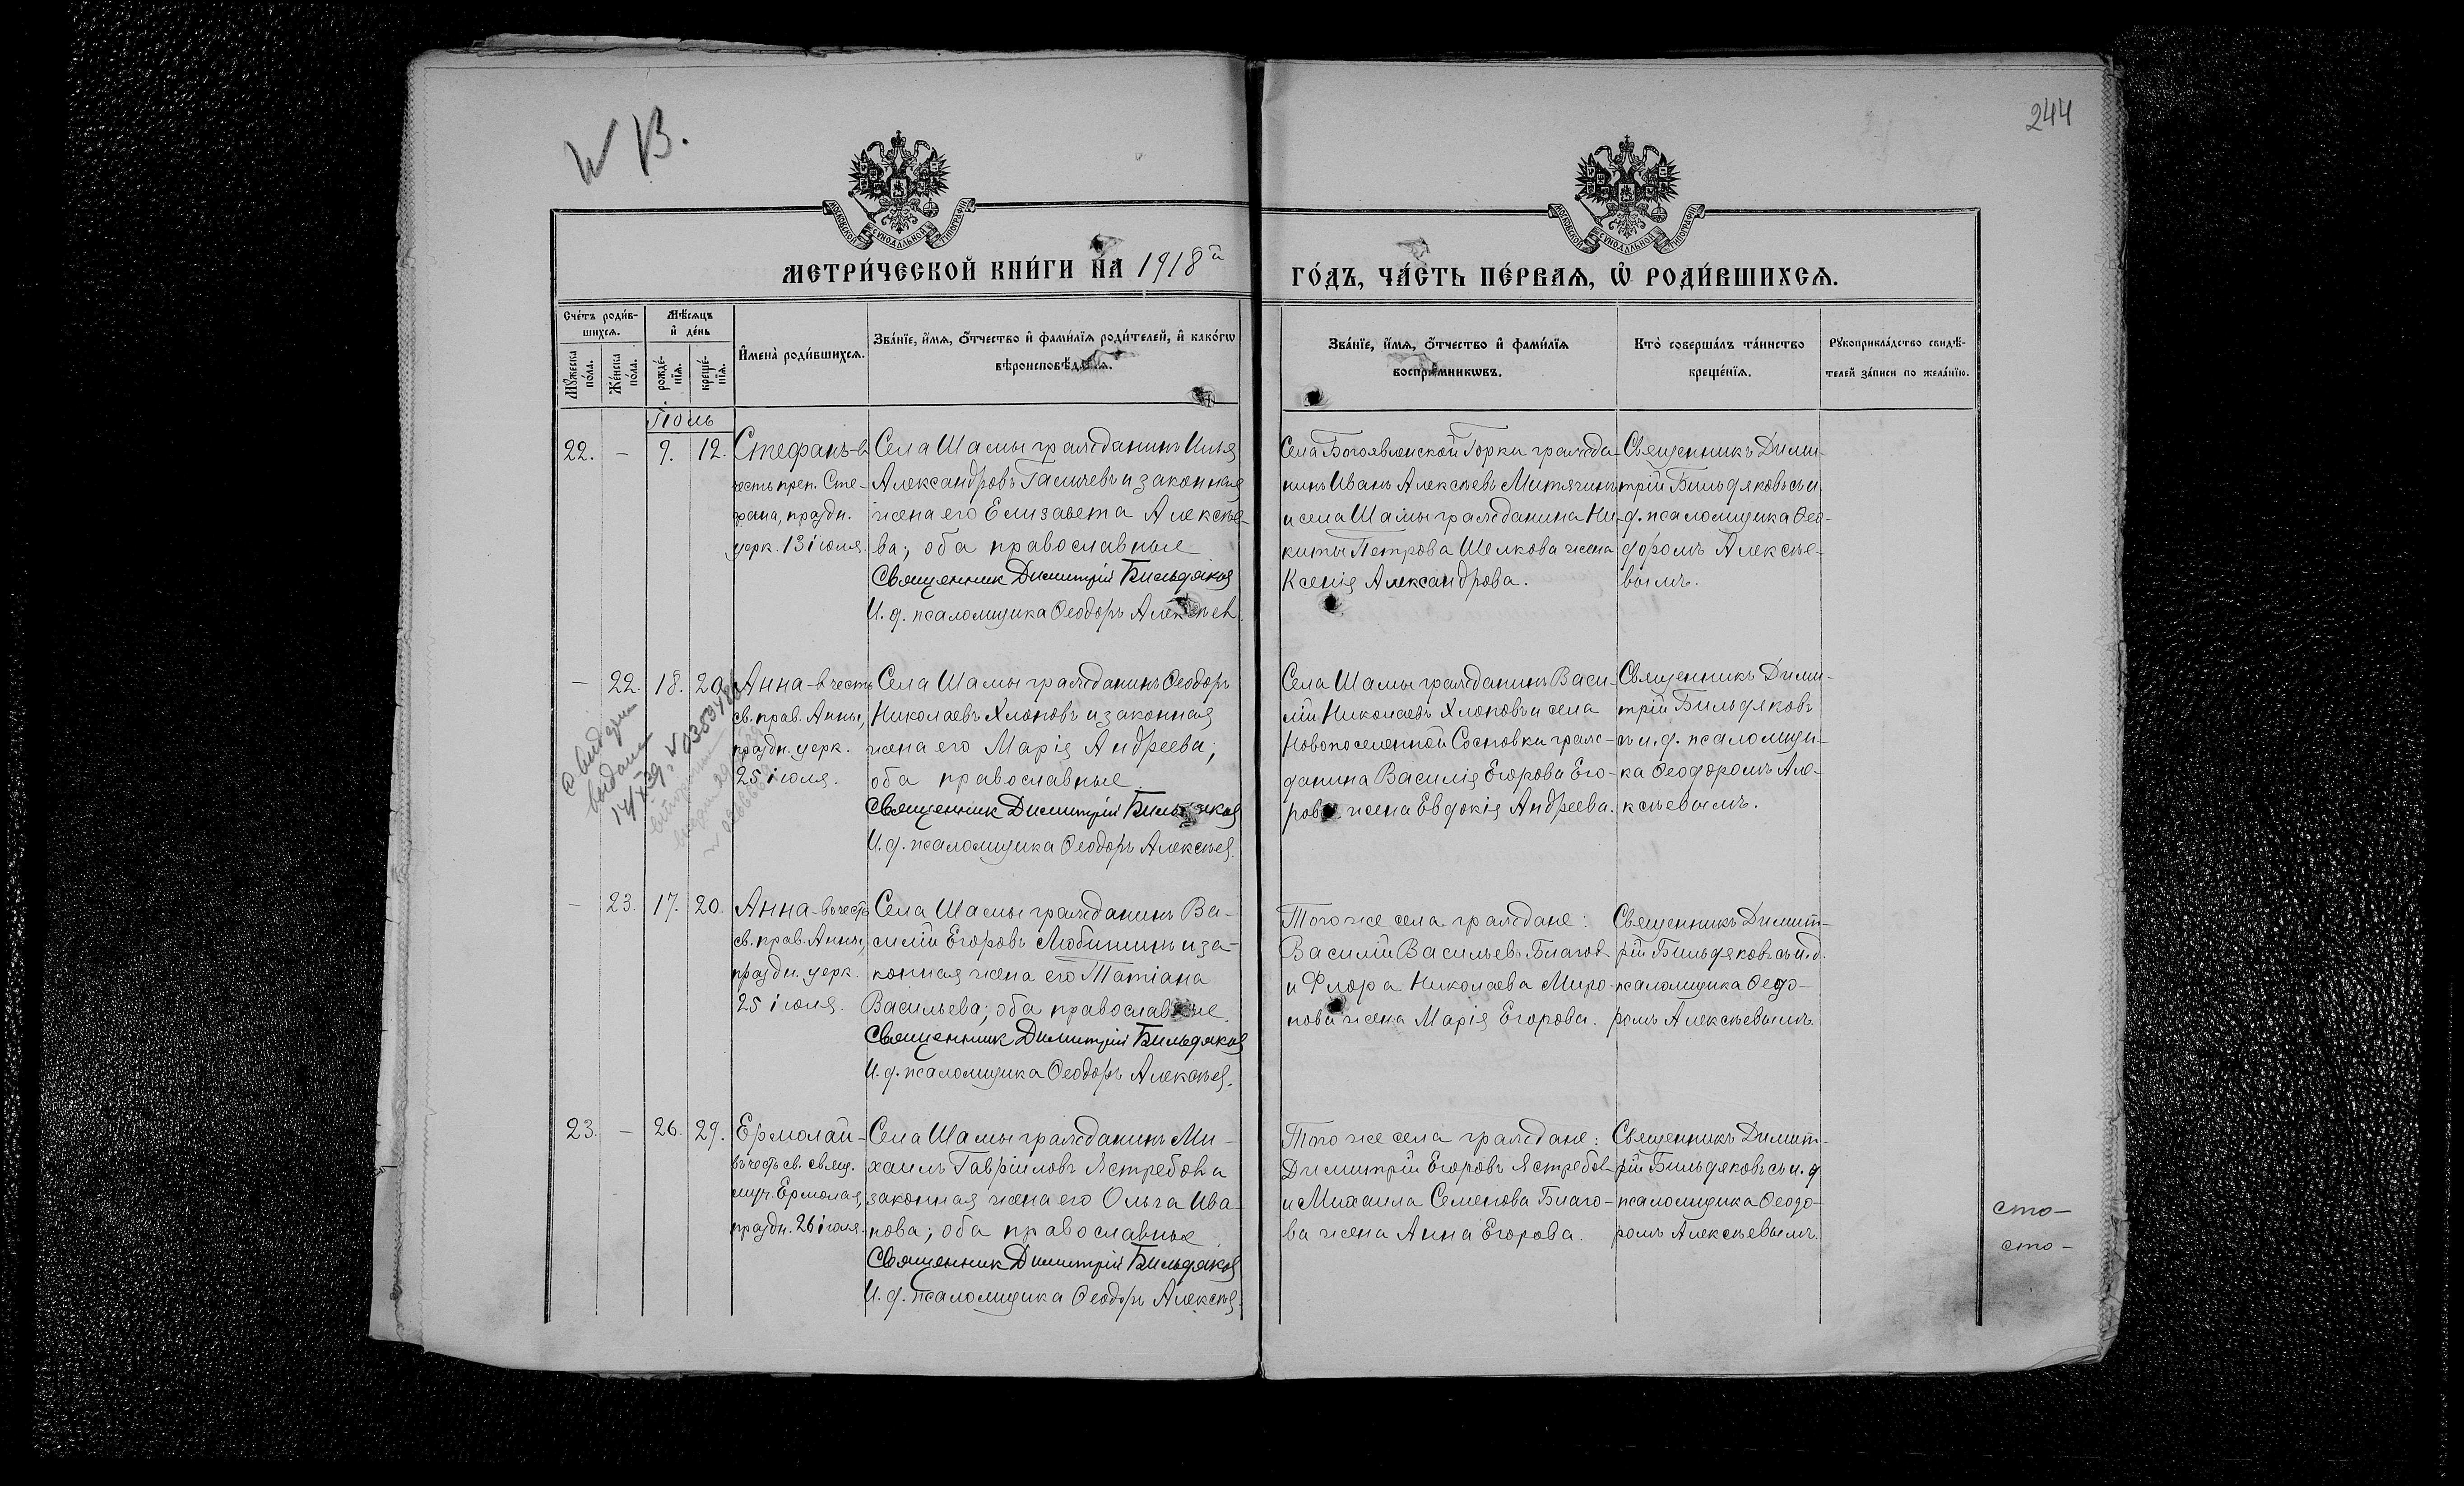 W В.
244
МОСКОВСКОЙ СѴНОДАЛЬНОЙ ТИПОГРАФІИ
МОСКОВСКОЙ СѴНОДАЛЬНОЙ ТИПОГРАФІИ
МЕТРИ́ЧЕСКОЙ КНИ́ГИ НА 1918й
ГО́ДЪ, ЧА́СТЬ ПЕ́РВАЯ, Ѡ҆ РОДИ́ВШИХСЯ.
Сче́тъ роди́в-
шихся.
Мꙋ́жеска
по́ла.
Же́нска
по́ла.
Мѣ́сяцъ
и҆ де́нь
рожде́-
нїя.
креще́-
нїя.
И҆мена̀ роди́вшихся.
Зва́нїе, и҆́мя, ѻ҆́тчество и҆ фами́лїя роди́телей, и҆ како́гѡ
вѣроисповѣ́данїя.
Зва́нїе, и҆́мя, ѻ҆́тчество и҆ фами́лїя
воспрїе́мникѡвъ.
Кто̀ соверша́лъ та́инство
креще́нїя.
Рꙋкоприкла́дство свидѣ́-
телей за́писи по жела́нїю.
Іюль
22. – 9. 12.
Стефанъ-в
честь преп. Сте-
фана, праздн.
церк. 13 іюля.
Села Шамы гражданинъ Илья
Александровъ Галичевъ и законная
жена его Елизавета Алексѣе-
ва; оба православные
Священник Димитрій Бильдяков
И. д. псаломщика Ѳеодоръ Алексѣев
Села Богоявленской Горки гражда-
нинъ Иванъ Алексѣевъ Митягинъ
и села Шамы гражданина Ни-
киты Петрова Шелкова жена
Ксенія Александрова.
Священникъ Дими-
трій Бильдяковъ съ и.
д. псаломщика Ѳео-
доромъ Алексѣе-
вымъ.
– 22. 18. 20.
Анна-в честь
св. прав. Анны,
праздн. церк.
25 іюля.
Села Шамы гражданинъ Ѳеодоръ
Николаевъ Хлоповъ и законная
жена его Марія Андреева;
оба православные
Священник Димитрій Бильдяков
И. д. псаломщика Ѳеодоръ Алексѣев.
Села Шамы гражданинъ Васи-
лій Николаевъ Хлоповъ и села
Новопоселенной Сосновки граж-
данина Василія Егорова Его-
рова жена Евдокія Андреева.
Священникъ Дими-
трій Бильдяковъ
съ и. д. псаломщи-
ка Ѳеодоромъ Але-
ксѣевымъ.
выдана
– 23. 17. 20.
Анна-въ честь
св. прав. Анны,
праздн. церк.
25 іюля.
Села Шамы гражданинъ Ва-
силій Егоровъ Любишинъ и за-
конная жена его Татіана
Васильева; оба православные.
Священник Димитрій Бильдяков
И. д. псаломщика Ѳеодоръ Алексѣев.
Того же села граждане:
Василій Васильевъ Благов
и Флора Николаева Миро-
нова жена Марія Егорова.
Священникъ Димит-
рій Бильдяковъ съ и. д.
псаломщика Ѳеодо-
ромъ Алексѣевымъ.
23. – 26. 29.
Ермолай-
въ честь св. свящ.
муч. Ермолая,
праздн. 26 іюля.
Села Шамы гражданинъ Ми-
хаилъ Гавріиловъ Ястребов и
законная жена его Ольга Ива-
нова; оба православные.
Священник Димитрій Бильдяков
И. д. псаломщика Ѳеодоръ Алексѣев.
Того же села граждане:
Димитрій Егоровъ Ястребов
и Михаила Семенова Благо-
ва жена Анна Егорова.
Священникъ Димит-
рій Бильдяковъ съ и. д
псаломщика Ѳеодо-
ромъ Алексѣевымъ.
сто-
сто-